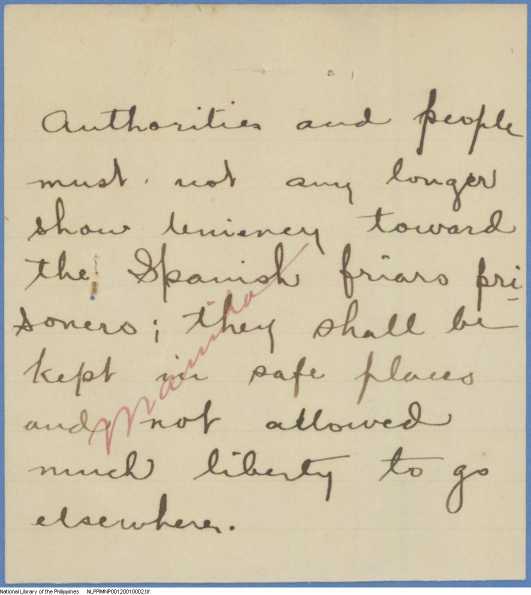 Authorities and people
must not any longer
show leniency toward
the Spanish friars pri-
soners; they shall be
kept in safe places
and not allowed
much liberty to go
elsewhere.
National Library of the Philippines